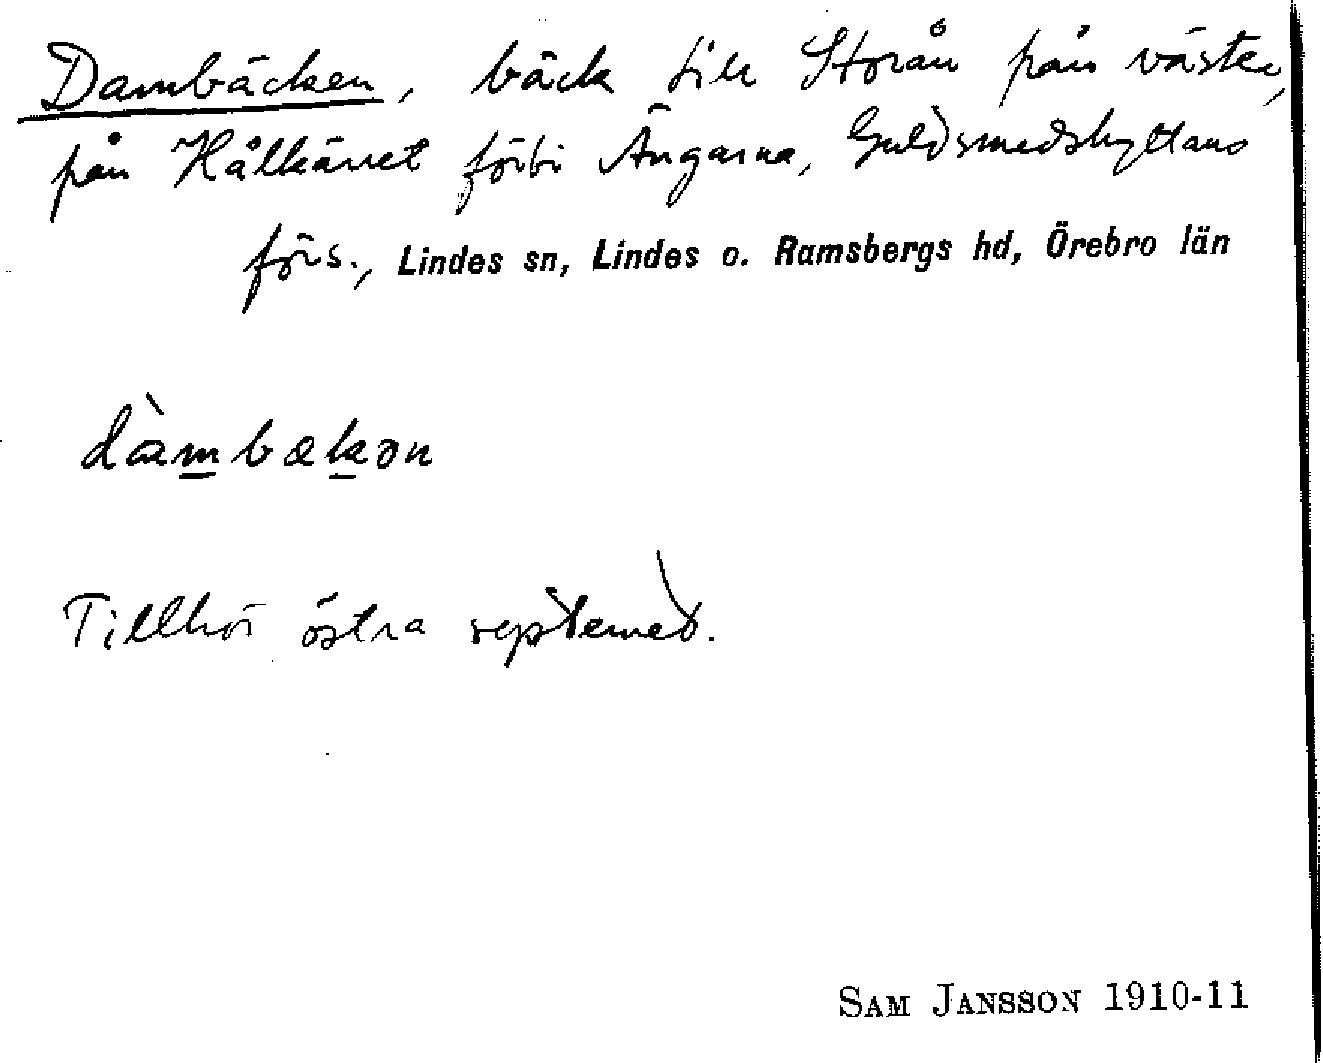 Dambäcken, bäck till Storån från väster,
från Hålkärret förbi Ängarna, Guldsmedshyttans
förs., Lindes sn, Lindes o. Ramsbergs hd, Örebro län
dàmbækən
Tillhör östra
SAM JANSSON 1910-11